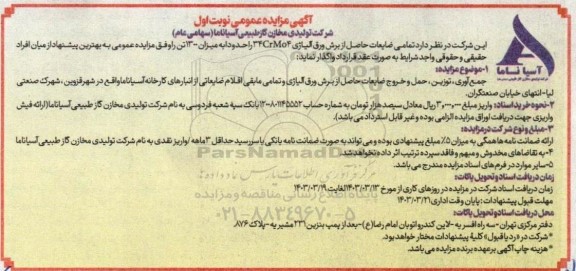 آگهی مزایده عمومی نوبت اول
شرکت تولیدی مخازن گاز طبیعی آسیاناما (سهامی عام)
این شرکت در نظر دارد تمامی ضایعات حاصل از برش ورق آلیاژی ۳۴CrMo۴ را حدودا به میزان ۱۳۰۰ تن را وفق مزایده عمومی به بهترین پیشنهاد از میان افراد
حقیقی و حقوقی واجد شرایط به صورت عقد قرارداد واگذار نماید:
۱-موضوع مزایده:
جمع آوری، توزین، حمل و خروج ضایعات حاصل از برش ورق آلیاژی و تمامی مابقی اقلام ضایعاتی از انبارهای کارخانه آسیاناما واقع در شهر قزوین، شهرک صنعتی
لیا-انتهای خیابان صنعتگران.
۲-نحوه خرید اسناد: واریز مبلغ ۳،۰۰۰،۰۰۰ ریال معادل سیصد هزار تومان به شماره حساب ۱۲-۸۰۱۱۴۵۵۵۲ بانک سپه شعبه فردوسی به نام شرکت تولیدی مخازن گاز طبیعی آسیاناما (ارائه فیش
واریزی جهت دریافت اوراق مزایده الزامی بوده و غیر قابل استرداد می باشد).
۳-مبلغ و نوع شرکت در مزایده:
ارائه ضمانت نامه ها همگی به میزان ۵٪ مبلغ پیشنهادی بوده و می تواند به صورت ضمانت نامه بانکی با سررسید حداقل ۳ ماهه /واریز نقدی به نام شرکت تولیدی مخازن گاز طبیعی آسیاناما
۴-به تقاضاهای مخدوش و مبهم و فاقد سپرده ترتیب اثر داده نخواهد شد.
۵-سایر موارد در فرم های اسناد مزایده مندرج می باشد.
زمان دریافت اسناد و تحویل پاکات:
زمان دریافت اسناد شرکت در مزایده در روزهای کاری از مورخ ۱۴۰۳/۰۳/۱۳ لغایت ۱۴۰۳/۰۳/۱۹
مهلت قبول پیشنهادات: پایان وقت اداری ۱۴۰۳/۰۳/۲۱
محل دریافت اسناد و تحویل پاکات:
دفتر مرکزی تهران -سه راه افسریه -لاین کندرو اتوبان امام رضا(ع)-بعد از پمپ بنزین ۲۳۱ مشیریه -پلاک ۸۷۶.
*شرکت در «رد یا قبول» کلیه پیشنهادات مختار خواهد بود.
*هزینه چاپ آگهی بر عهده برنده مزایده می باشد.
آسیا ناما
ParsNamadData
پایگاه اطلاع رسانی مناقصه و مزایده
۰۲۱-۸۸۳۴۹۶۷۰-۵